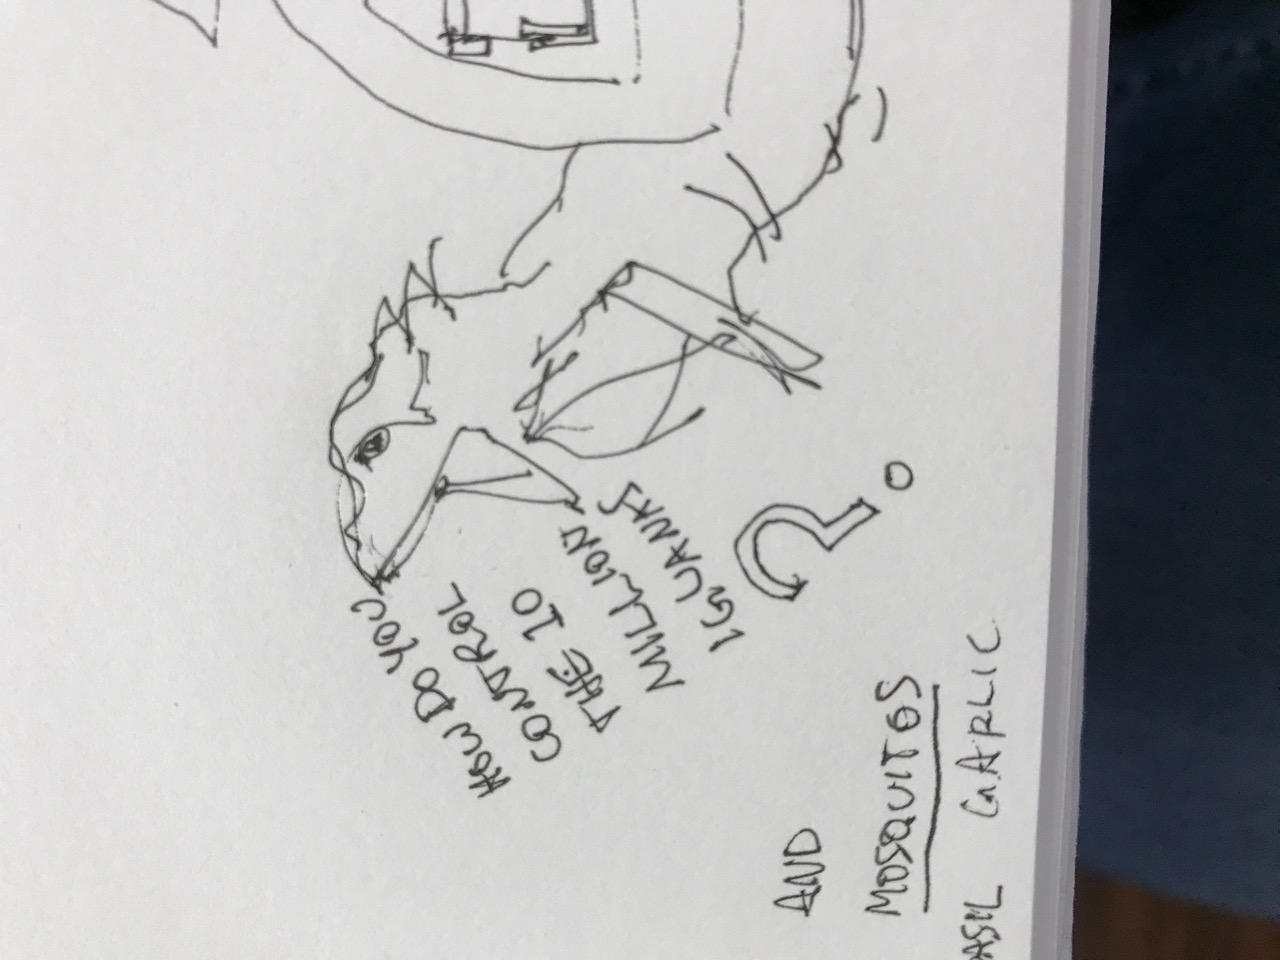 HOW DO YOU
CONTROL
THE 10
MILLION
IGUANAS
?
AND
MOSQUITOS
ASIL GARLIC